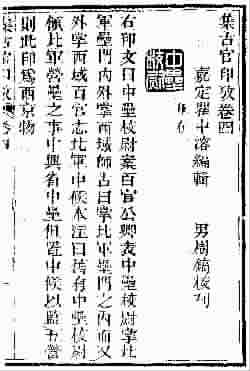 集古官印攷卷四
嘉定瞿中溶編輯 男樹鎬校刊
中壘校尉
右印文曰中壘校尉案百官公卿表中壘校尉掌北
軍壘門內外掌西域師古曰掌北軍壘門之內而又
外掌西域百官志北軍中候本注曰舊有中壘校尉
領北軍營壘之事中興省中壘但置中候以監五營
則此印爲西京物
集古官印攷卷四